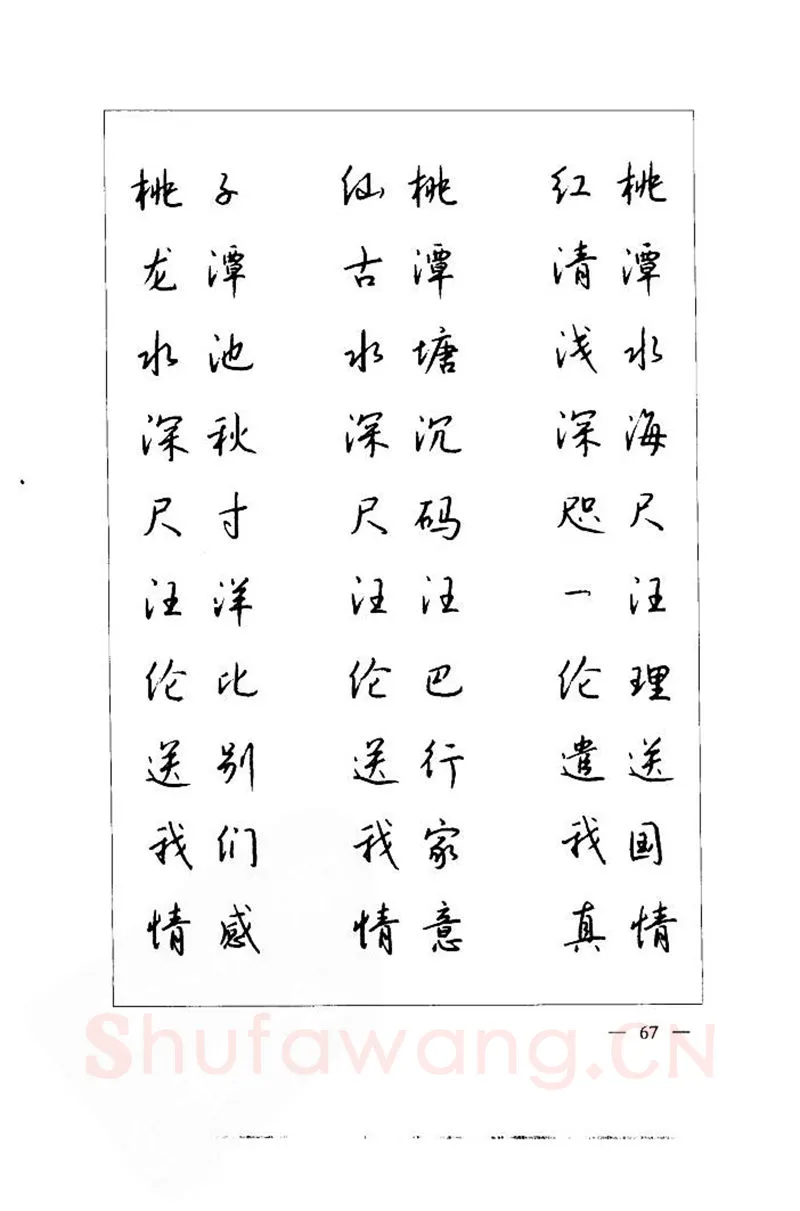 桃子 仙桃 红桃
龙潭 古潭 清潭
水池 水塘 浅水
深秋 深沉 深海
尺寸 尺码 咫尺
汪洋 汪汪 一汪
伦比 伦巴 伦理
送别 送行 遣送
我们 我家 我国
情感 情意 真情
— 67 —
Shufawang.CN